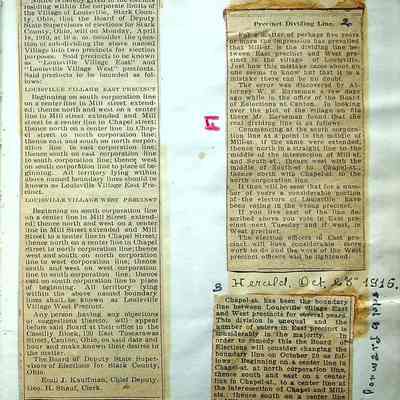 within the corporate limits of
the Village of Louisville, Stark Coun-
ty, Ohio, that the Board of Deputy
State Supervisors of elections for Stark
County, Ohio, will on Monday, April
tion of sub-dividing the above named
Village into two precincts for election
purposes. Said precincts to be known
as "Louisville Village East" and
"Louisville Village West" precincts.
Said precincts to be bounded as fol-
lows:
LOUISVILLE VILLAGE EAST PRECINCT
Beginning on south corporation line
on a center line in Mill street extend-
ed; thence north and west on a center
line in Mill street extended and Mill
street to a center line in Chapel street;
thence north on a center line in Chap-
el street to north corporation line;
thence east and south on north corpo-
ration line to east corporation line;
thence south on east corporation line
to south corporation line; thence west
on south corporation line to place of be-
ginning. All territory lying within
above named boundary lines should be
known as Louisville Village East Pre-
cinct.
LOUISVILLE VILLAGE WEST PRECINCT
Beginning on south corporation line
on a center line in Mill street extend-
ed; thence north and west on a center
line in Mill street extended and Mill
street to a center line in Chapel street;
thence north on a center line in Chapel
street to north corporation line; thence
west and south on north corporation
line to west corporation line; thence
south and west on west corporation
line to south corporation line; thence
east on south corporation line to place
of beginning. All territory lying
within the above named boundary
lines shall be known as Louisville
Village West Precinct.
Any person having any objections
or suggestions thereto, will appear
before said Board at their office in the
Street, Canton, Ohio, on said date and
hour and make known their desire in
the matter.
The Board of Deputy State Super-
visors of Elections for Stark County,
Ohio.
Emil J. Kauffman, Chief Deputy
Geo. H. Clerk.
Precinct Dividing Line. 2
For a matter of perhaps five years
or more the impression has prevailed
that Mill-st is the dividing line be-
tween East precinct and West pre-
cinct in the village of Louisville.
Just how this mistake came about no
one seems to know but that it is a
mistake there can be no doubt.
The error was discovered by At-
torney W. E. a few days
ago while in the office of the Board
of Elections at Canton. In looking
over the plot of the village on file
there Mr. found that the
real dividing line is as follows:
Commencing at the south corpora-
tion line at a point in the middle of
Mill-st, if the same were extended,
thence north in a straight line to the
middle of the intersection of Mill-st,
and South-st, thence west with the
middle of South-st to Chapel-st,
thence north with Chapel-st to the
north corporation line.
It thus will be seen that for a num-
ber of years a considerable portion
of the electors of Louisville have
been voting in the wrong precinct.
If you live east of the line de-
scribed above you vote in East pre-
cinct next Tuesday and if west, in
West precinct.
The election officers of East pre-
cinct will have considerable more
work to do and the work of the West
precinct officers will be lightened.
3 Herald, Oct 1915.
Chapel-st. has been the boundary
line between Louisville Village East
and West precincts for several years.
This division is unequal and the
number of voters in East precinct is
considerably in the majority. In
order to remedy this the Board of
Elections will consider changing the
boundary line on October 20 as fol-
lows: Beginning on a center line in
Chapel-st. at north corporation line,
thence south and east on a center
line in Chapel-st. to a center line at
the intersection of Chapel and Mill-
sts., thence south on a center line